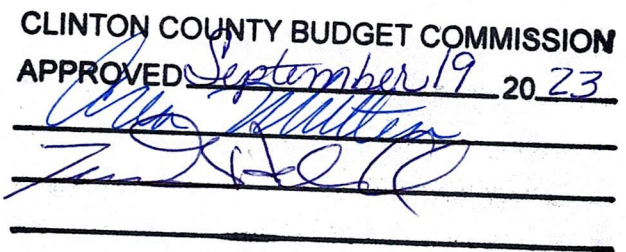 CLINTON COUNTY BUDGET COMMISSION
APPROVED September 19 20 23